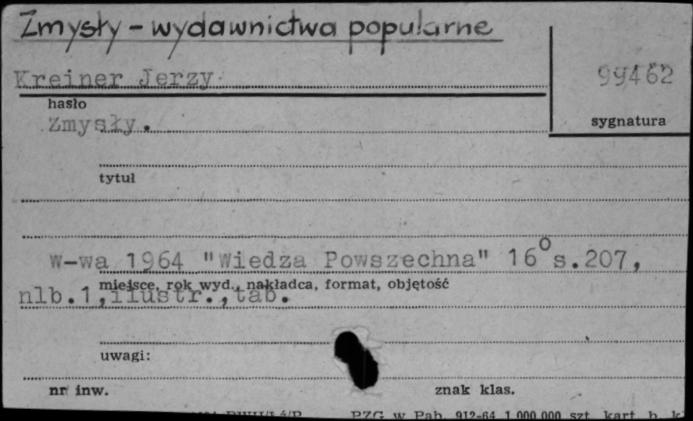 Zmysły - wydawnictwa popularne
Kreiner Jerzy
99462
hasło
Zmysły.
sygnatura
tytuł
W-wa 1964 "Wiedza Powszechna" 16° s.207,
miejsce, rok wyd., nakładca, format, objętość
nlb.1,ilustr.,tab.
uwagi:
nr inw.
znak klas.
PZG w Pab. 912-64 1.000.000 szt. kart. b. k